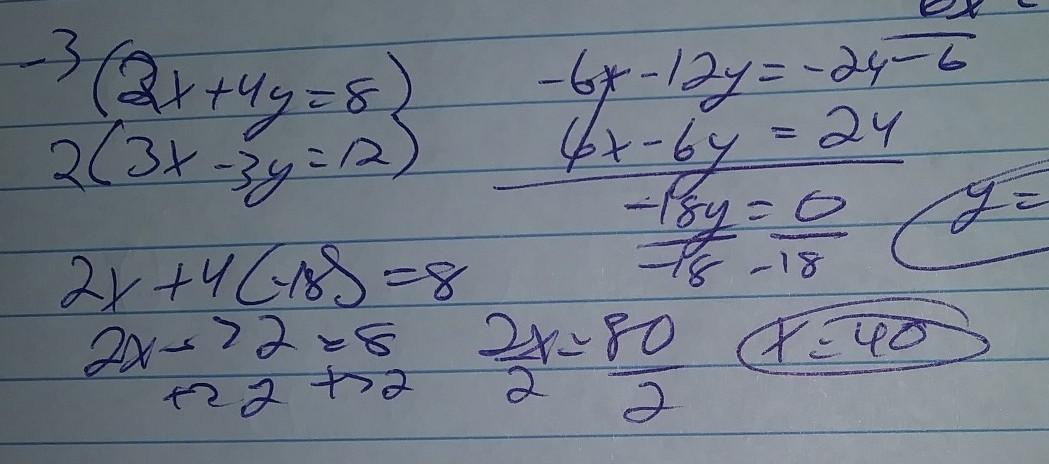 -3 (2x + 4y = 8)
2 (3x - 3y = 12)
-6x - 12y = -24
6x - 6y = 24
-18y = 0
-18 -18
y =
-6
2x + 4(-18) = 8
2x - 72 = 8
+72 +72
2x = 80
2 2
x = 40